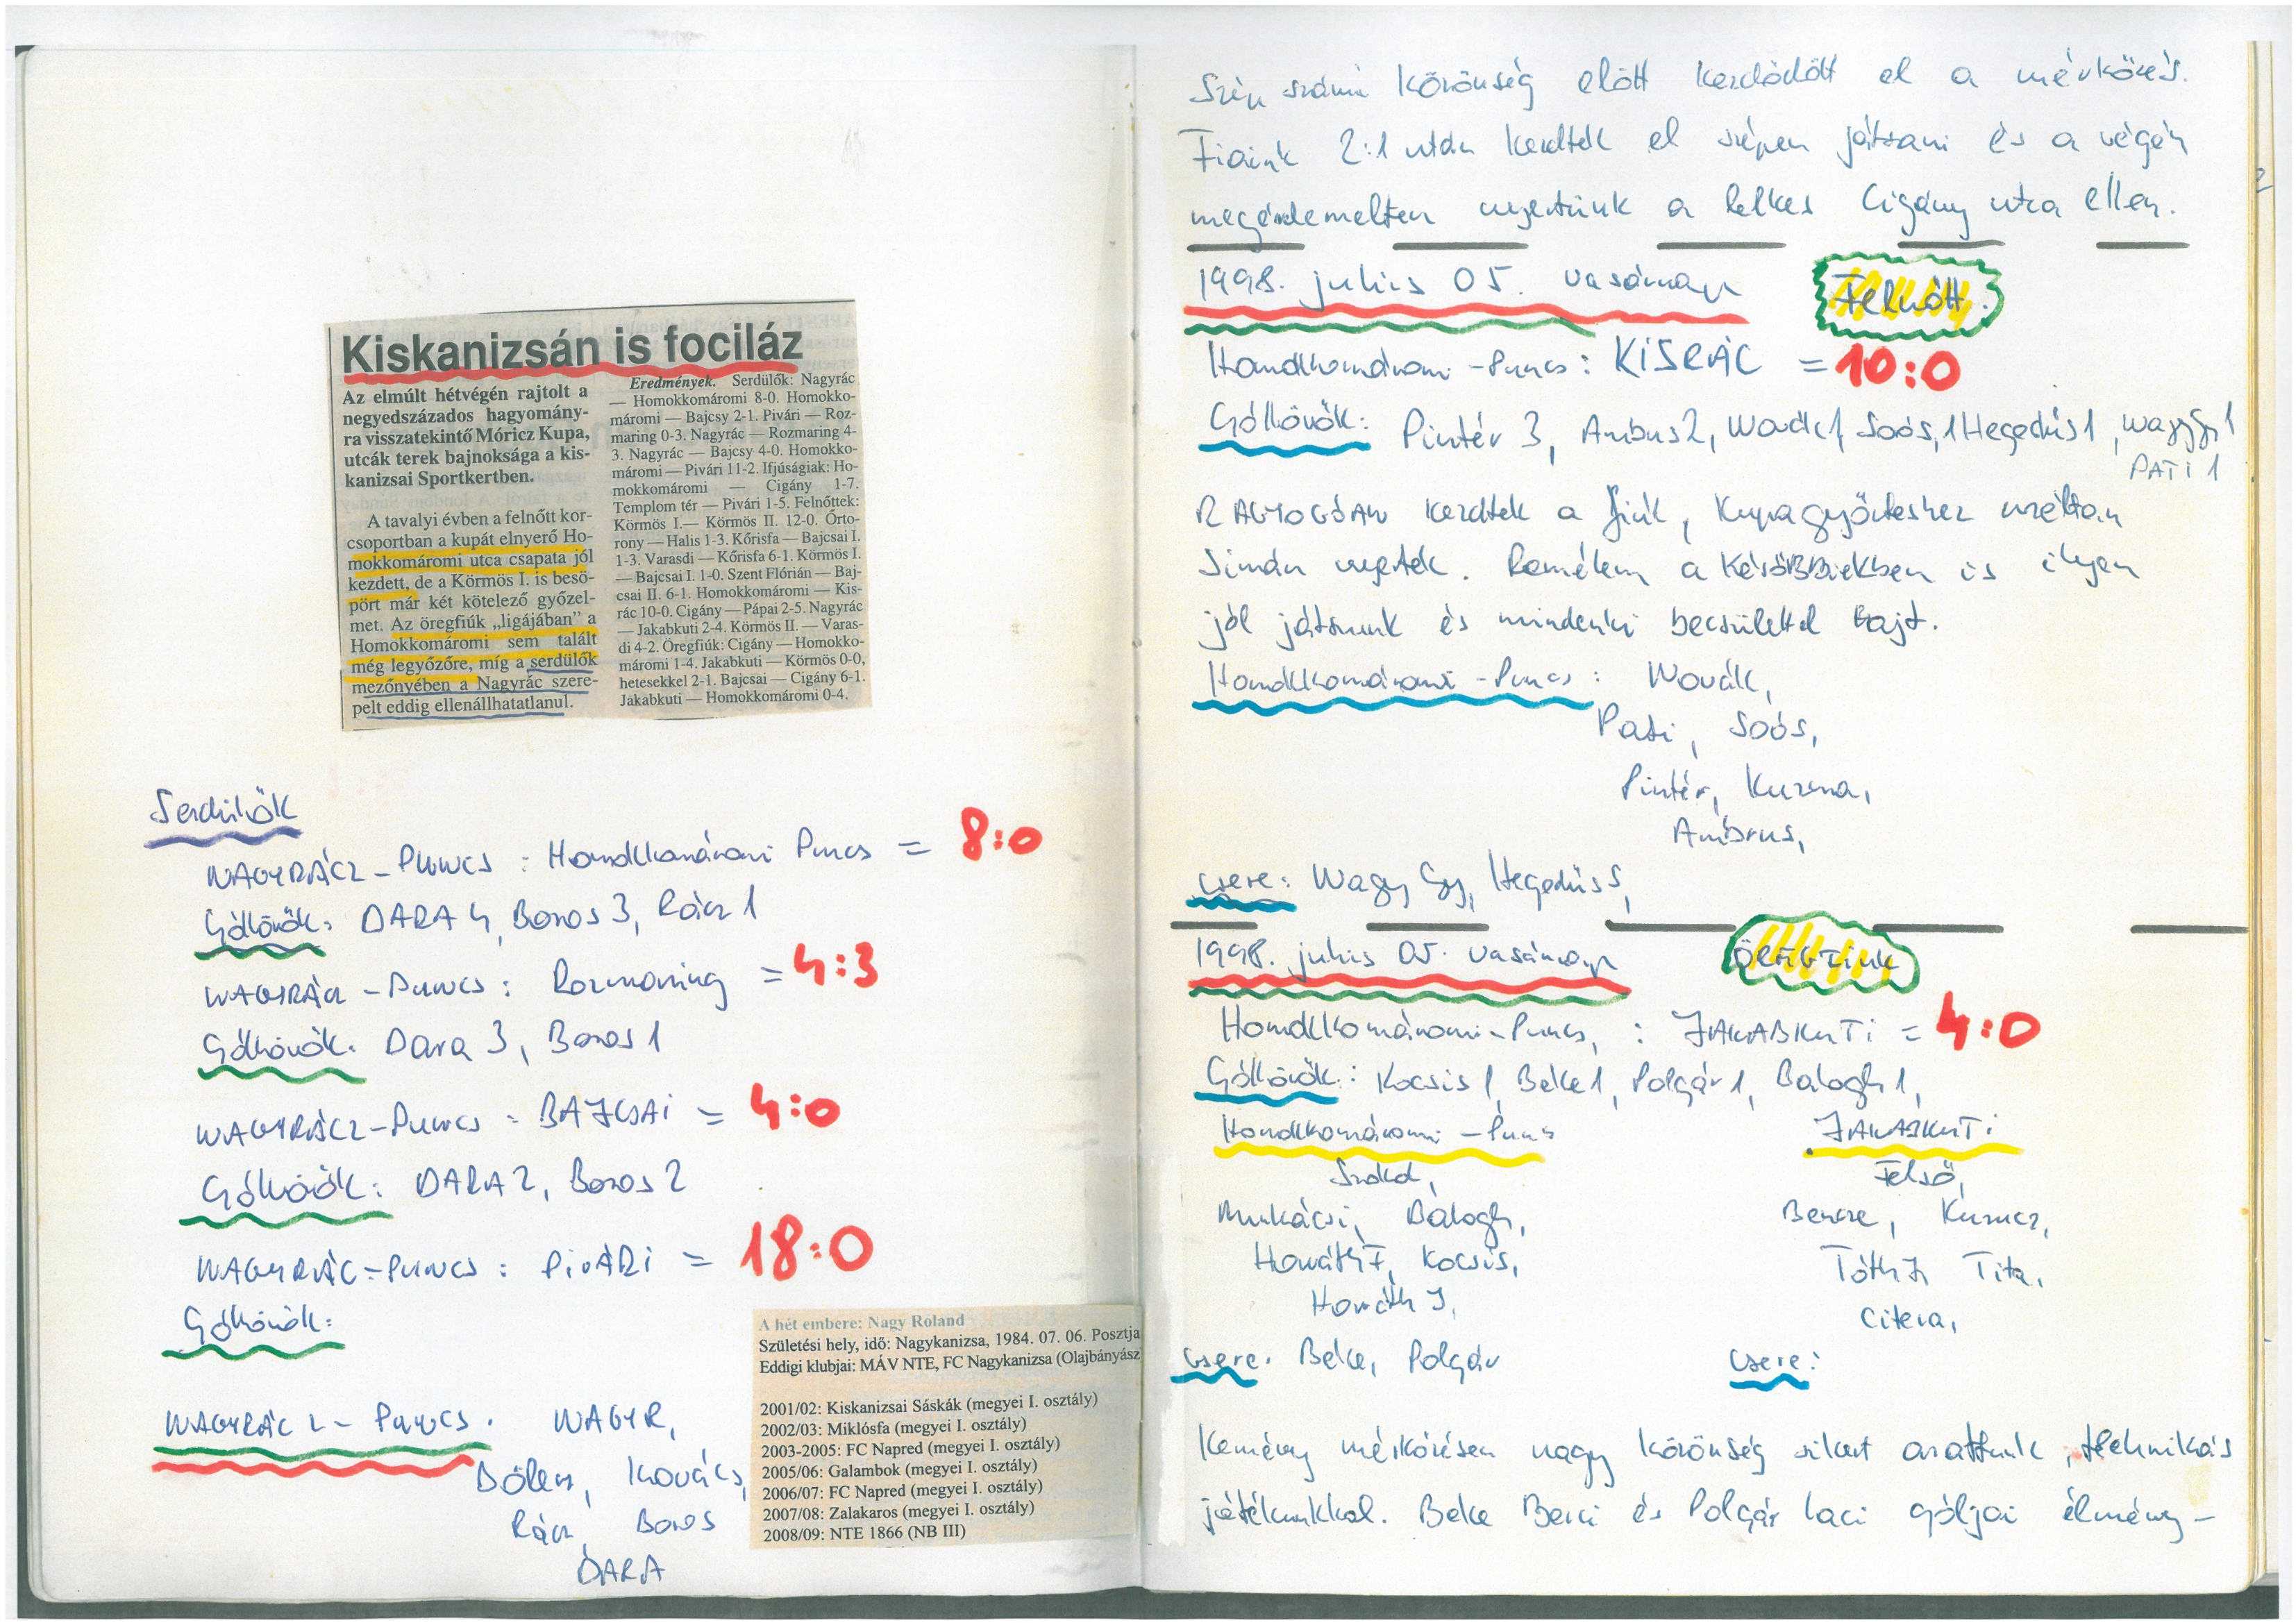 Kiskanizsán is fociláz
Az elmúlt hétvégén rajtolt a
negyedszázados hagyomány-
ra visszatekintő Móricz Kupa,
utcák terek bajnoksága a kis-
kanizsai Sportkertben.
A tavalyi évben a felnőtt kor-
csoportban a kupát elnyerő Ho-
mokkomáromi utca csapata jól
kezdett, de a Körmös I. is besö-
pört már két kötelező győzel-
met. Az öregfiúk „ligájában” a
Homokkomáromi sem talált
még legyőzőre, míg a serdülők
mezőnyében a Nagyrác szere-
pelt eddig ellenállhatatlanul.
Eredmények. Serdülők: Nagyrác
— Homokkomáromi 8-0. Homokko-
máromi — Bajcsy 2-1. Pivári — Roz-
maring 0-3. Nagyrác — Rozmaring 4-
3. Nagyrác — Bajcsy 4-0. Homokko-
máromi — Pivári 11-2. Ifjúságiak: Ho-
mokkomáromi — Cigány 1-7.
Templom tér — Pivári 1-5. Felnőttek:
Körmös I.— Körmös II. 12-0. Őrto-
rony — Halis 1-3. Kőrisfa — Bajcsai I.
1-3. Varasdi — Kőrisfa 6-1. Körmös I.
— Bajcsai I. 1-0. Szent Flórián — Baj-
csai II. 6-1. Homokkomáromi — Kis-
rác 10-0. Cigány — Pápai 2-5. Nagyrác
— Jakabkuti 2-4. Körmös II. — Varas-
di 4-2. Öregfiúk: Cigány — Homokko-
máromi 1-4. Jakabkuti — Körmös 0-0,
hetesekkel 2-1. Bajcsai — Cigány 6-1.
Jakabkuti — Homokkomáromi 0-4.
Serdülők
NAGYRÁCZ - PUNCS : Homokkomáromi Puncs = 8:0
Góllövők: DARA 4, Boros 3, Rácz 1
NAGYRÁCZ - Puncs : Rozmaring = 4:3
Góllövők: Dara 3, Boros 1
NAGYRÁCZ - Puncs : BAJCSAI = 4:0
Góllövők: DARA 2, Boros 2
NAGYRÁC - PUNCS : PIVÁRI = 18:0
Góllövők:
NAGYRÁCZ - PUNCS : NAGY R,
Bőlen, Kovács,
Rácz Boros
DARA
A hét embere: Nagy Roland
Születési hely, idő: Nagykanizsa, 1984. 07. 06. Posztja
Eddigi klubjai: MÁV NTE, FC Nagykanizsa (Olajbányász
2001/02: Kiskanizsai Sáskák (megyei I. osztály)
2002/03: Miklósfa (megyei I. osztály)
2003-2005: FC Napred (megyei I. osztály)
2005/06: Galambok (megyei I. osztály)
2006/07: FC Napred (megyei I. osztály)
2007/08: Zalakaros (megyei I. osztály)
2008/09: NTE 1866 (NB III)
Szép számú közönség előtt kezdődött el a mérkőzés.
Fiaink 2:1 után kezdték el szépen játszani és a végén
megérdemelten nyertünk a lelkes Cigány utca ellen.
1998. julius 05. vasárnap Felnőtt.
Homokkomáromi - Puncs : KISRÁC = 10:0
Góllövők: Pintér 3, Ambrus 2, Novák 1, Soós, 1 Hegedüs 1, Nagy Gy 1
PATI 1
RAGYOGÓAN kezdtek a fiúk, Kupagyőzteshez méltóan
simán nyertek. Remélem a KésőBBiekben is ilyen
jól játszunk és mindenki becsülettel hajt.
Homokkomáromi - Puncs : Novák,
Pati, Soós,
Pintér, Kuzma,
Ambrus,
csere: Nagy Gy, Hegedüs S,
1998. julius 05. vasárnap ÖREGFIUK
Homokkomáromi - Puncs, : JAKABKUTI = 4:0
Góllövők: Kocsis 1, Beke 1, Polgár 1, Balogh 1,
Homokkomáromi - Puncs JAKABKUTI
Szokol, Felső,
Munkácsi, Balogh, Bencze, Kurucz,
Horváth F, Kocsis, Tóth J, Titz,
Horváth J, Citera,
csere: Beke, Polgár csere:
Kemény mérkőzésen nagy közönség sikert arattunk, technikás
játékunkkal. Beke Berci és Polgár Laci góljai élmény-